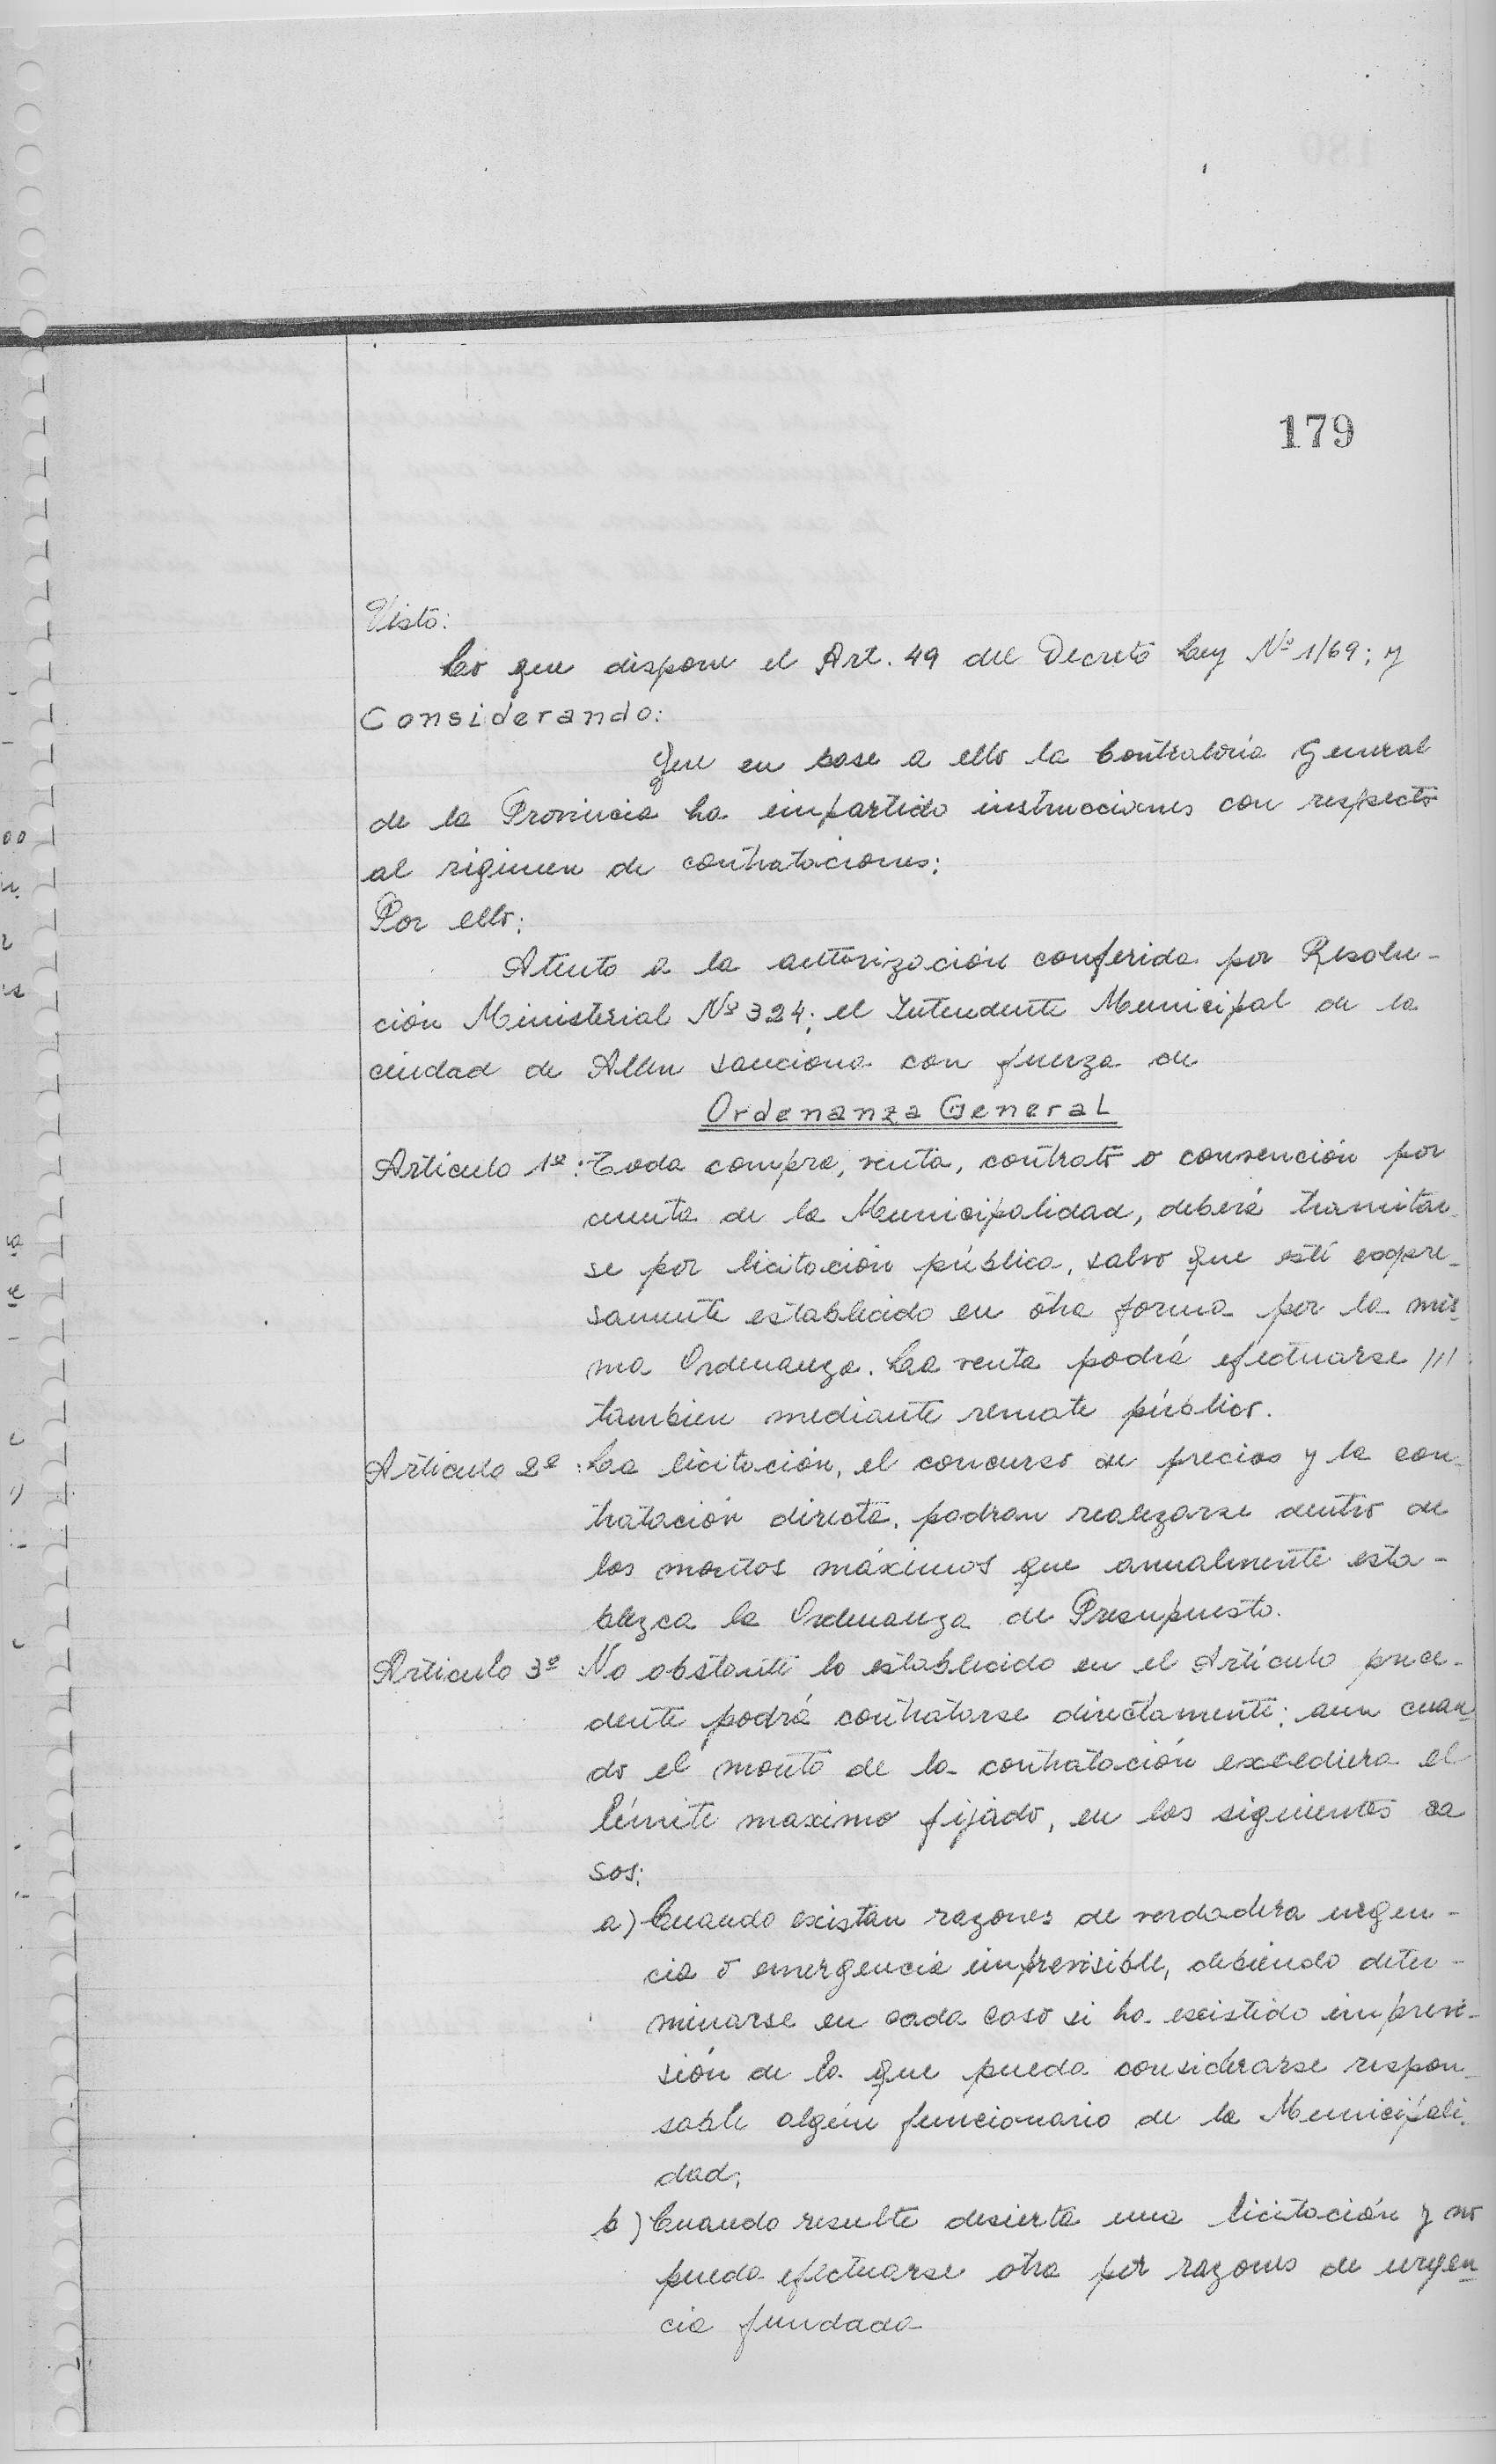 179
Visto:
Lo que dispone el Art. 49 del Decreto Ley Nº 1/69; y
Considerando:
Que en base a ello la Contraloria General
de la Provincia ha impartido instrucciones con respecto
al régimen de contrataciones;
Por ello:
Atento a la autorización conferida por Resolu-
ción Ministerial Nº 324; el Intendente Municipal de la
ciudad de Allen sanciona con fuerza de
Ordenanza General
Artículo 1º: Toda compra, venta, contrato o convención por
cuenta de la Municipalidad, deberá tramitar-
se por licitación pública, salvo que esté expre-
samente establecido en otra forma por la mis-
ma Ordenanza. La venta podrá efectuarse ///
tambien mediante remate público.
Artículo 2º: La licitación, el concurso de precios y la con-
tratación directa, podran realizarse dentro de
los montos máximos que anualmente esta-
blezca la Ordenanza de Presupuesto.
Articulo 3º: No obstante lo establecido en el Artículo prece-
dente podrá contratarse directamente; aun cuan-
do el monto de la contratación excediera el
límite maximo fijado, en los siguientes ca
sos:
a) Cuando existan razones de verdadera urgen-
cia o emergencia imprevisible, debiendo deter-
minarse en cada caso si ha existido imprevi-
sión de la que pueda considerarse respon-
sable algún funcionario de la Municipali-
dad;
b) Cuando resulte desierta una licitación y no
pueda efectuarse otra por razones de urgen-
cia fundada